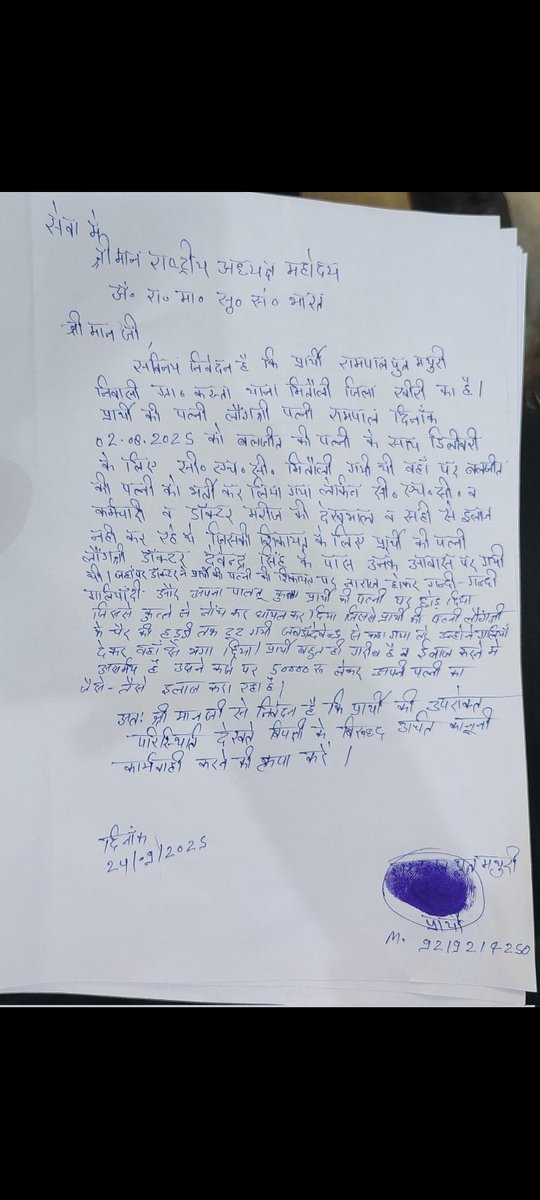 सेवा में
श्री मान राष्ट्रीय अध्यक्ष महोदय
अं० रा० मा० सु० सं० भारत
श्री मान जी,
सविनय निवेदन है कि प्रार्थी रामपाल पुत्र मथुरी
निवासी ग्रा० करसा थाना मितौली जिला खीरी का है।
प्रार्थी की पत्नी लौंगश्री पत्नी रामपाल दिनांक
02.08.2025 को बलजीत की पत्नी के साथ डिलीवरी
के लिए सी० एच० सी० मितौली गयी थी वहाँ पर बलजीत
की पत्नी को भर्ती कर लिया गया लेकिन सी० एच० सी० व
कर्मचारी व डॉक्टर मरीज की देखभाल व सही से इलाज
नही कर रहे थे जिसकी शिकायत के लिए प्रार्थी की पत्नी
लौंगश्री डॉक्टर देवेन्द्र सिंह के पास उनके आवास पर गयी
थी। जहां पर डॉक्टर ने प्रार्थी की पत्नी की शिकायत पर नाराज होकर गन्दी-गन्दी
गालियां दी और अपना पालतू कुत्ता प्रार्थी की पत्नी पर छोड़ दिया
जिससे कुत्ते ने नोंच कर घायल कर दिया जिससे प्रार्थी की पत्नी लौंगश्री
के पैर की हड्डी तक टूट गयी जब देवेन्द्र से कहा गया तो उन्होंने गालियाँ
देकर वहां से भगा दिया। प्रार्थी बहुत ही गरीब है व इलाज कराने में
असमर्थ है उसने कर्ज पर 50000 रू लेकर अपनी पत्नी का
जैसे-तैसे इलाज करा रहा है।
अतः श्री मान जी से निवेदन है कि प्रार्थी की उपरोक्त
परिस्थिति देखते विपक्षी के विरुद्ध उचित कानूनी
कार्यवाही करने की कृपा करें।
दिनांक
24/09/2025
पुत्र मथुरी
प्रार्थी
M. 9219214250